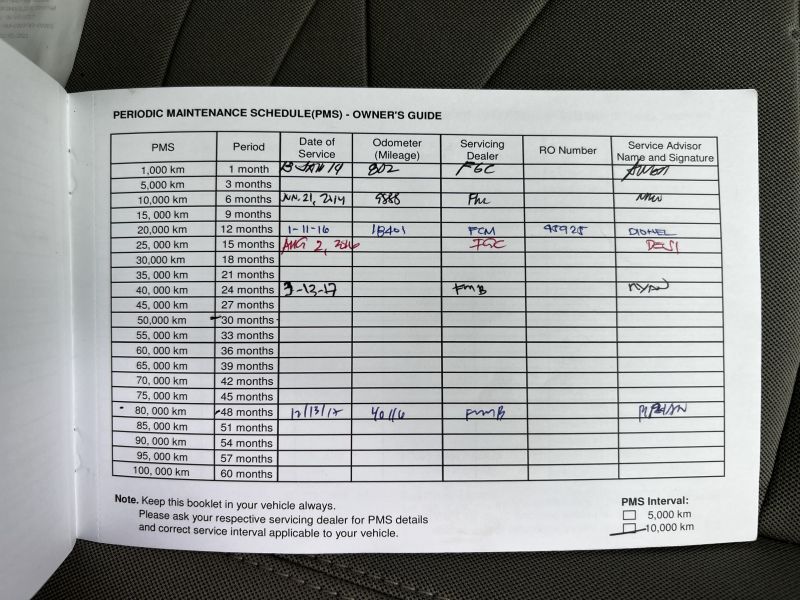 PERIODIC MAINTENANCE SCHEDULE(PMS) - OWNER'S GUIDE
PMS Period Date of Service Odometer (Mileage) Servicing Dealer RO Number Service Advisor Name and Signature
1,000 km 1 month 802 FGC
5,000 km 3 months
10,000 km 6 months JUN. 21, 2014
15, 000 km 9 months
20,000 km 12 months 1-11-16 18401 FCM DIONEL
25, 000 km 15 months AUG 2, 2016 FGC DENSI
30,000 km 18 months
35, 000 km 21 months
40, 000 km 24 months 3-13-17 FMB RYAN
45, 000 km 27 months
50,000 km 30 months
55, 000 km 33 months
60, 000 km 36 months
65, 000 km 39 months
70, 000 km 42 months
75, 000 km 45 months
80, 000 km 48 months 12/13/17 40116 FMMB
85, 000 km 51 months
90, 000 km 54 months
95, 000 km 57 months
100, 000 km 60 months
Note. Keep this booklet in your vehicle always.
Please ask your respective servicing dealer for PMS details
and correct service interval applicable to your vehicle.
PMS Interval:
5,000 km
10,000 km